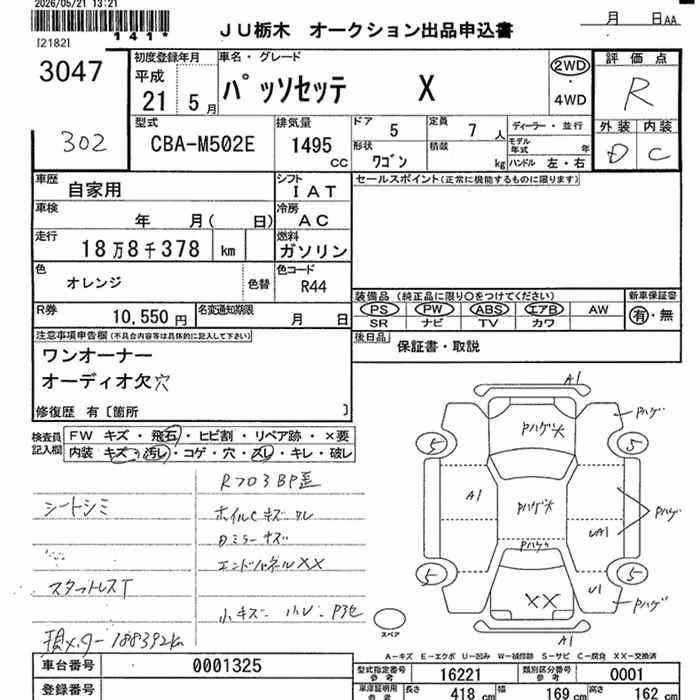 2026/05/21 13:21
[2182]
141*
JU栃木 オークション出品申込書
月 日AA
3047
302
初度登録年月
平成
21 5月
車名・グレード
パッソセッテ X
2WD
・
4WD
評価点
R
外装 内装
D C
型式
CBA-M502E
排気量
1495 CC
ドア 5
定員 7 人
形状 ワゴン
積載 kg
ディーラー・並行
モデル年式 年
ハンドル 左・右
車歴
自家用
シフト
IAT
車検
年 月( 日)
冷房
AC
走行
18万8千378 km
燃料
ガソリン
色
オレンジ
色替
色コード
R44
R券
10,550円
名変通知期限
月 日
セールスポイント(正常に機能するものに限ります)
装備品(純正品に限り○をつけてください)
PS PW ABS エアB AW
SR ナビ TV カワ
新車保証書
有・無
後日品
保証書・取説
注意事項申告欄(不具合内容等は具体的に記入して下さい)
ワンオーナー
オーディオ欠穴
修復歴 有〔箇所 〕
検査員記入欄
FW キズ・飛石・ヒビ割・リペア跡・×要
内装 キズ・汚レ・コゲ・穴・スレ・キレ・破レ
シートシミ
スタットレスT
現メーター188392km
ホイルCキズ
Dミラーキズ
エンドパネルXX
小キズ
A1
Pハゲ
Pハゲ大
5
5
A1
Pハゲ大
Pハゲ
UA1
Pハゲ
5
5
U1
XX
Pハゲ
A1
スペア
A-キズ E-エクボ U-凹み W-補修跡 S-サビ C-腐食 XX-交換済
車台番号
0001325
登録番号
型式指定番号 参考
16221
類別区分番号 参考
0001
車庫証明用 参考
長さ 418 cm
幅 169 cm
高さ 162 cm